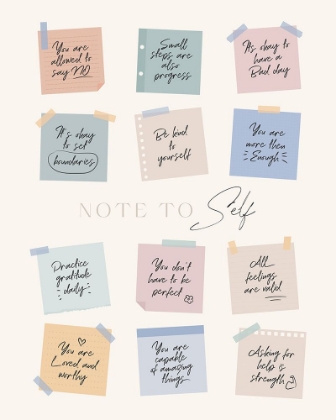 You are
allowed to
say NO
Small
steps are
also
progress
It's okay to
have a
Bad day
It's okay
to set
boundaries
Be kind
to
yourself
You are
more then
Enough
NOTE TO Self
Practice
gratitude
daily
You don't
have to be
perfect
All
feelings
are valid
You are
Loved and
worthy
You are
capable
of amazing
things
Asking for
help is
strength